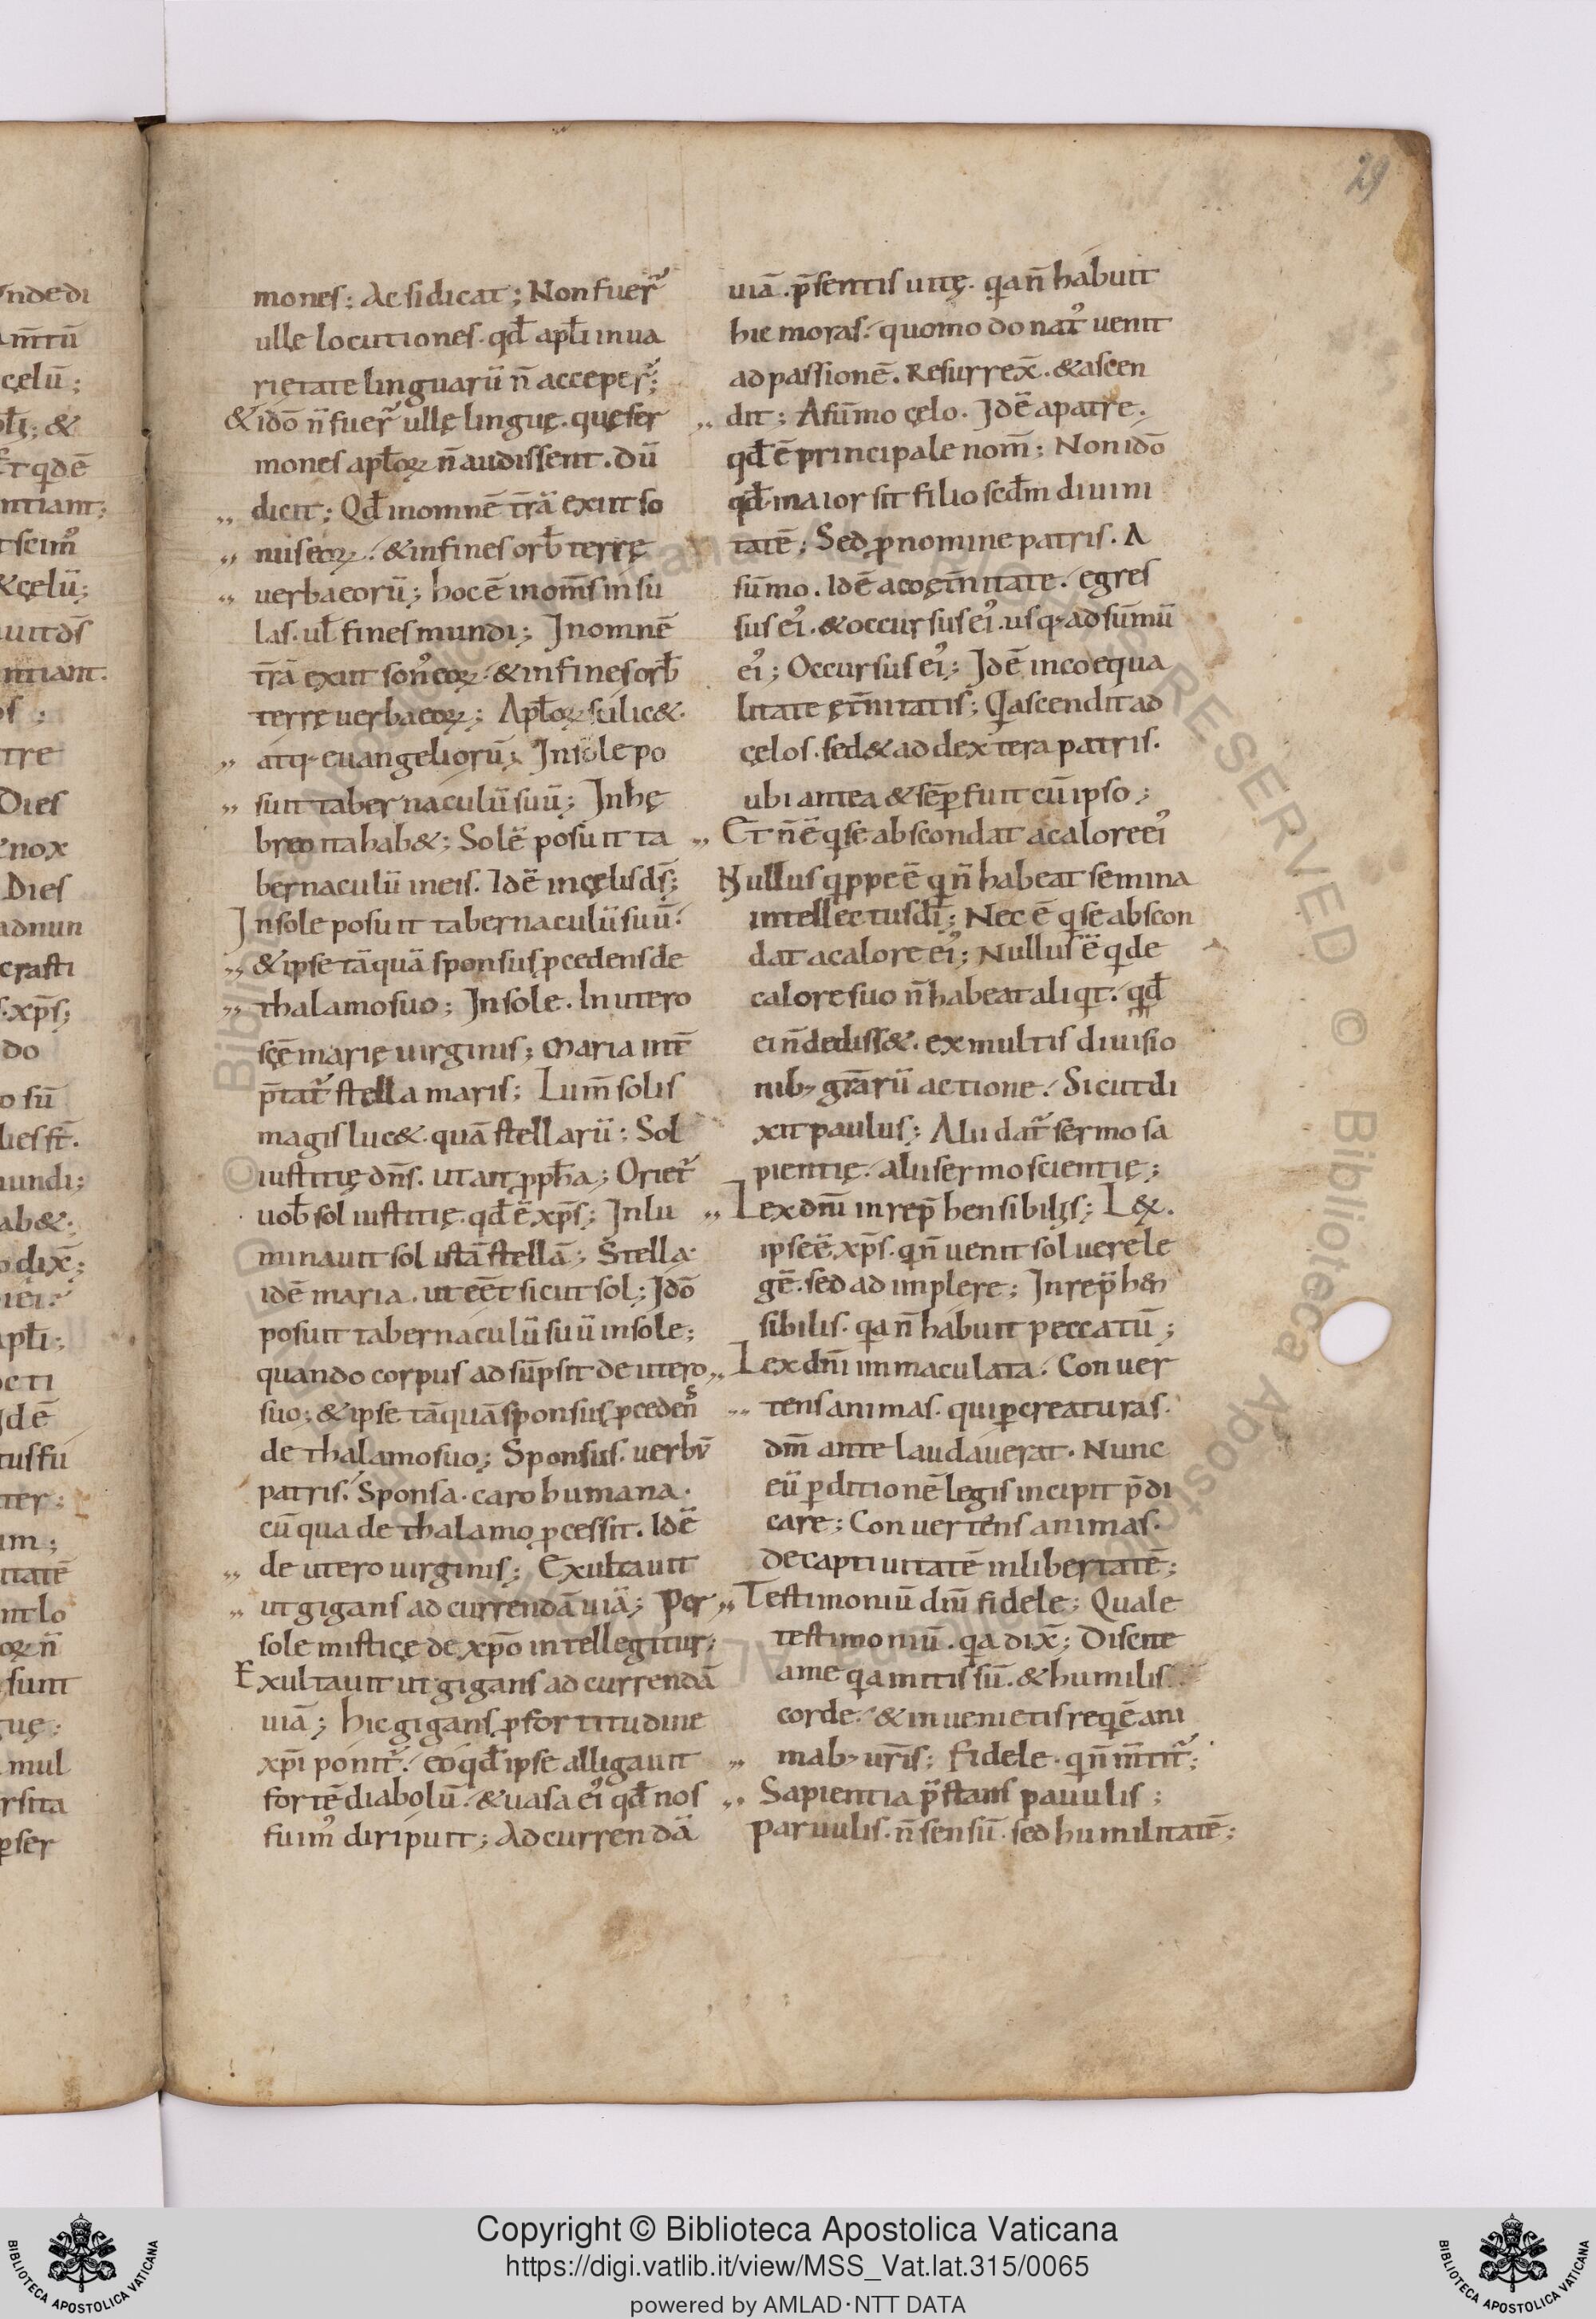 29
mones; Ac si dicat; Non fuer̃
ulle locutiones. qđ apłi in ua
rietate linguarū n̄ acceper̃;
& idō n̄ fuer̃ ullę linguę. quę ser
mones apłoꝝ n̄ audissent. dū
„ dicit; Qđ in omnē t̄rā exiit so
„ nus eoꝝ. & in fines orƀ terrę
„ uerba eorū; hoc ē in om̄s insu
las. uł fines mundi; In omnē
t̄rā exiit son᾽ eoꝝ. & in fines orƀ
terrę uerba eoꝝ; Apłoꝝ scilic&.
„ atq; euangeliorū; In sole po
„ suit tabernaculū suū; In hę
breo ita hab&; Solē posuit ta
bernaculū in eis. Idē in cęlis dś;
In sole posuit tabernaculū suū.
„ & ipse tāquā sponsus ꝓcedens de
„ thalamo suo; In sole. In utero
sc̄ę marię uirginis; Maria int̄
p̄tat̃ stella maris; Lum̄ solis
magis luc& quā stellarū; Sol
iustitię dn̄s. ut ait ꝓpħa; Oriet̃
uoƀ sol iustitię. qđ ē xp̄s; Inlu
minauit sol istā stellā; Stella
idē maria. ut eēt sicut sol; Idō
posuit tabernaculū suū in sole;
quando corpus adsūpsit de utero
suo; & ipse tāquā sponsus ꝓcedens
de thalamo suo; Sponsus. uerbū
patris. Sponsa. caro humana.
cū qua de thalamo ꝓcessit. Idē
„ de utero uirginis; Exultauit
„ ut gigans ad currendā uiā; Per
sole misticę de xp̄o intellegitur;
Exultauit ut gigans ad currendā
uiā; hic gigans ꝓ fortitudine
xp̄i ponit̃. eo qđ ipse alligauit
fortē diabolū. & uasa ei᾽ qđ nos
fuim᾽ diripuit; Ad currendā
uiā. p̄sentis uitę. qa n̄ habuit
hic moras. quomodo nat᾽ uenit
ad passionē. Resurrex̄. & ascen
„ dit; A sūmo cęlo. Idē a patre.
qđ ē principale nom̄; Non idō
qđ maior sit filio scđm diuini
tatē; Sed ꝓ nomine patris. A
sūmo. Idē a coęt̄nitate. egres
sus ei᾽. & occursus ei᾽. usq; ad sūmū
ei᾽; Occursus ei᾽; Idē in coequa
litate ęt̄nitatis; Qa ascendit ad
cęlos. sed & ad dextera patris.
ubi antea & sēꝑ fuit cū ipso;
„ Et n̄ ē q se abscondat a calore ei᾽
Nullus qppe ē q n̄ habeat semina
intellectus di̅; Nec ē q se abscon
dat a calore ei᾽; Nullus ē q de
calore suo n̄ habeat aliqt. qđ
ei n̄ dediss&. ex multis diuisio
nib; grārū actione. Sicut di
xit paulus; Alii dat̃ sermo sa
pientię. alii sermo scientię;
„ Lex dn̄i inrep̄hensibilis; Lex.
ipse ē xp̄s. q n̄ uenit soluere le
gē. sed adimplere; Inrep̄hen
sibilis. qa n̄ habuit peccatū;
„ Lex dn̄i immaculata. Conuer
„ tens animas. qui ꝑ creaturas.
dm̄ ante laudauerat. Nunc
eū ꝑ ditionē legis incipit p̄di
care; Conuertens animas.
de captiuitatē in libertatē;
„ Testimoniū dn̄i fidele; Quale
testimoniū. qa dix̄; Discite
a me qa mitis sū. & humilis
corde. & inuenietis reqē ani
„ mab; ur̄is; Fidele. q n̄ m̄tit̃;
„ Sapientia p̄stans pauulis;
Paruulis. n̄ sensū. sed humilitatē;
Copyright © Biblioteca Apostolica Vaticana
https://digi.vatlib.it/view/MSS_Vat.lat.315/0065
powered by AMLAD·NTT DATA
BIBLIOTECA APOSTOLICA VATICANA
BIBLIOTECA APOSTOLICA VATICANA